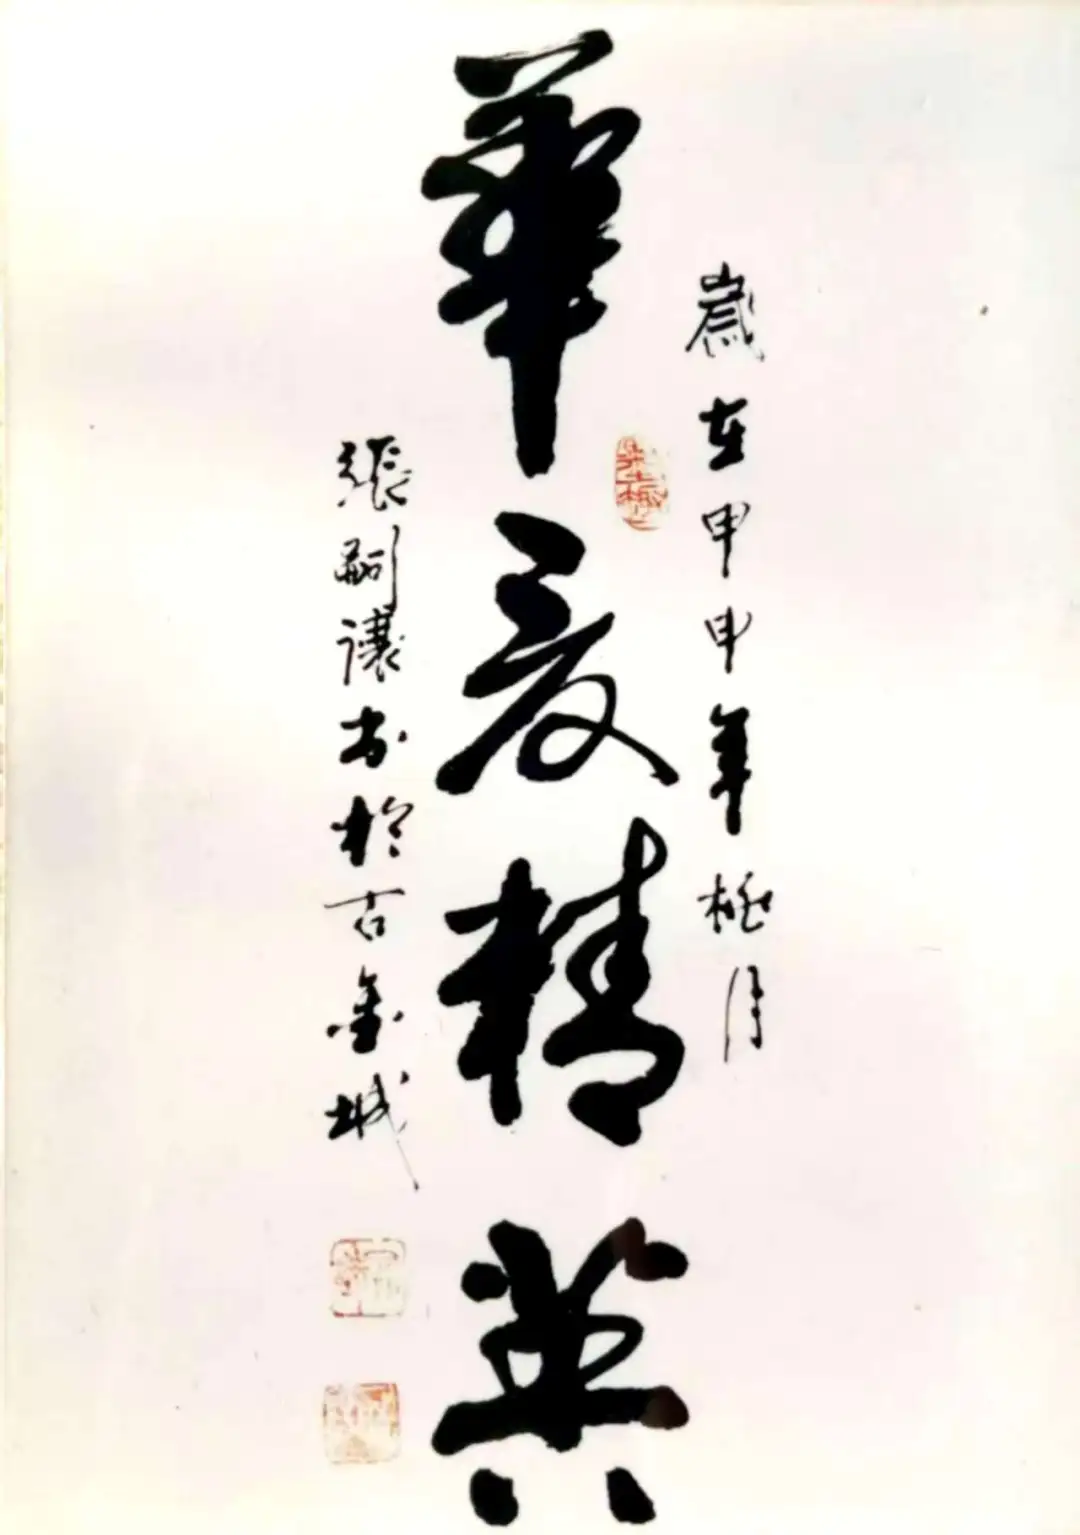 歲在甲申年月
華夏精英
張嗣讓書於古金城